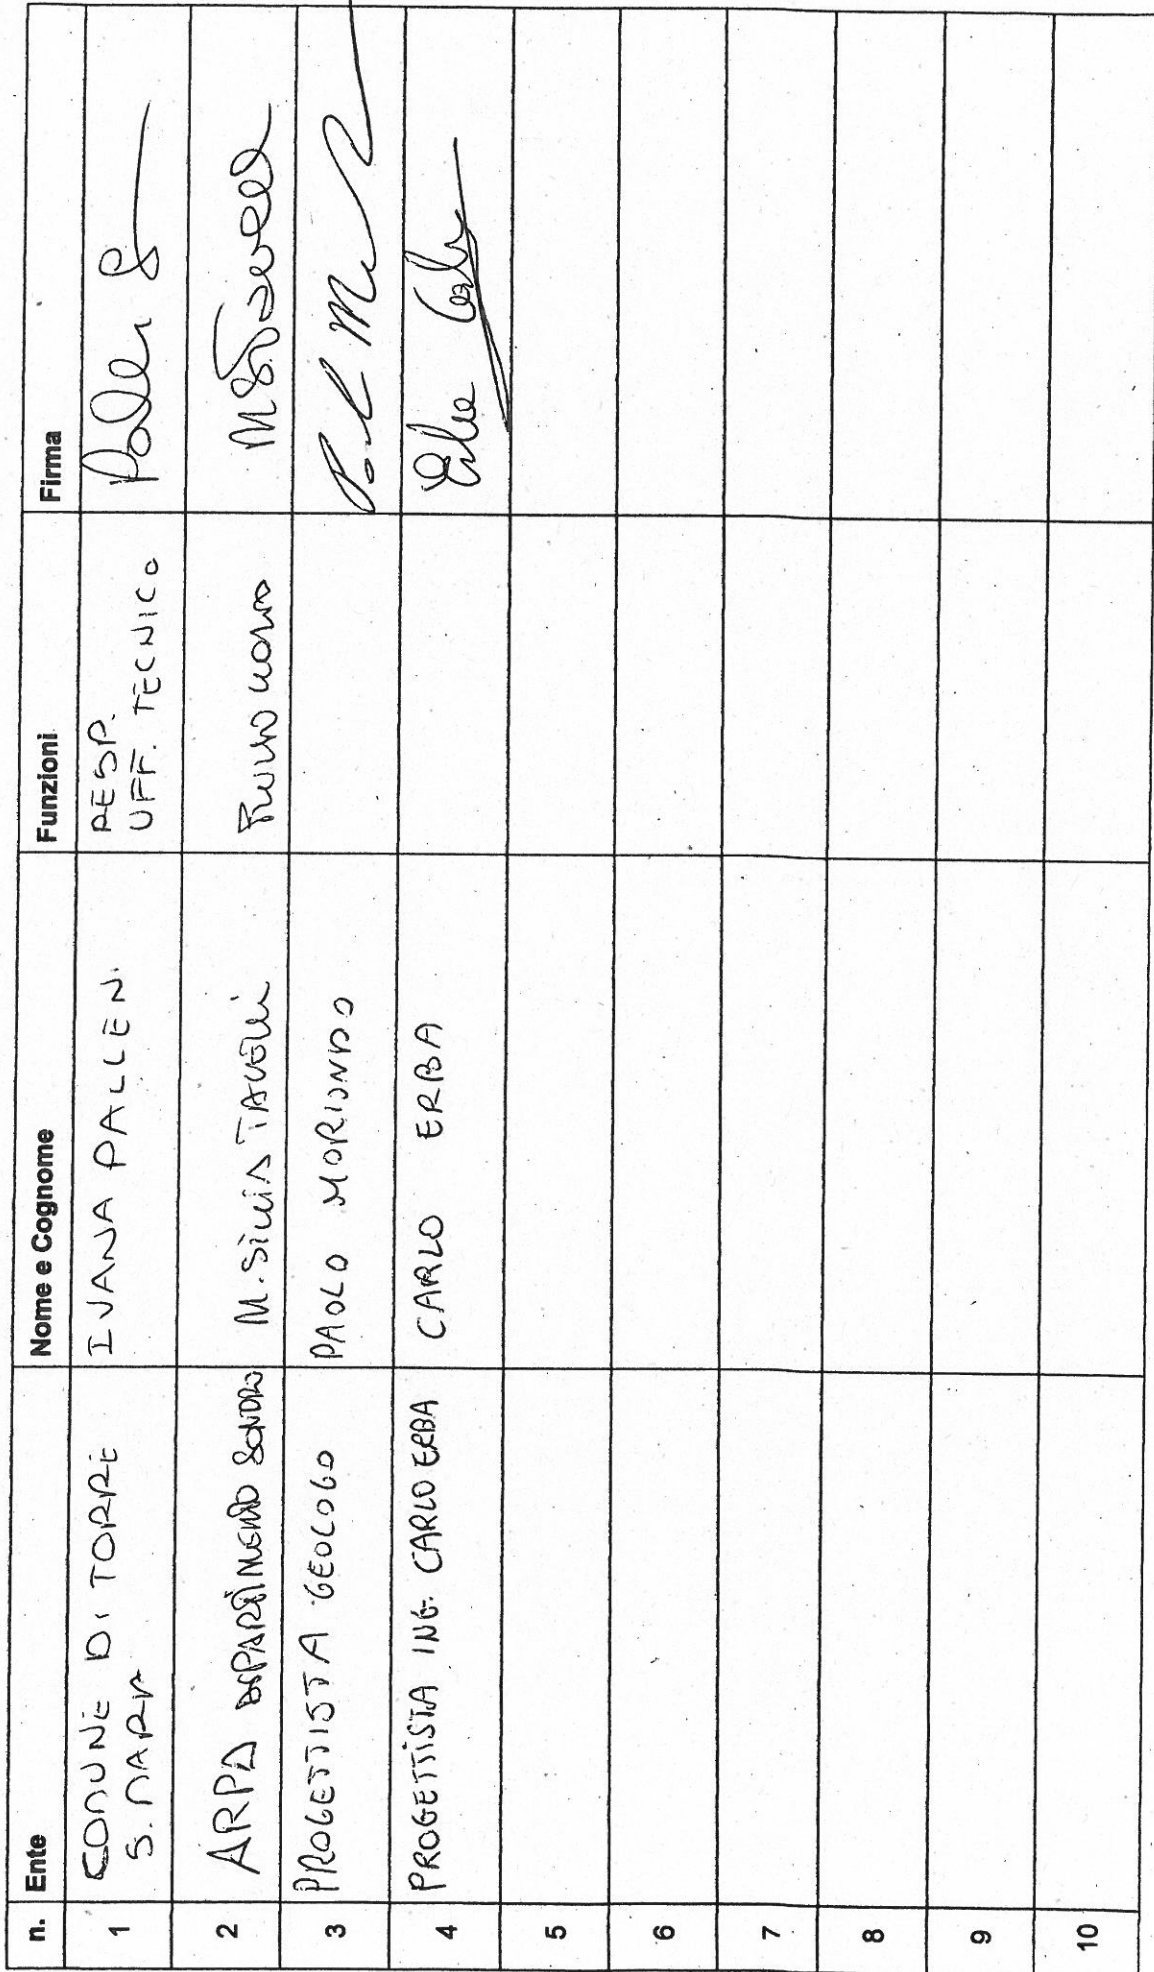 n. Ente Nome e Cognome Funzioni Firma
1 COMUNE DI TORRE S. MARIA IVANA PALLENI RESP. UFF. TECNICO
2 ARPA DIPARTIMENTO SONDRIO M. SILVIA TAVELLI
3 PROGETTISTA GEOLOGO PAOLO MORIONDO
4 PROGETTISTA ING. CARLO ERBA CARLO ERBA Erba Carlo
5
6
7
8
9
10